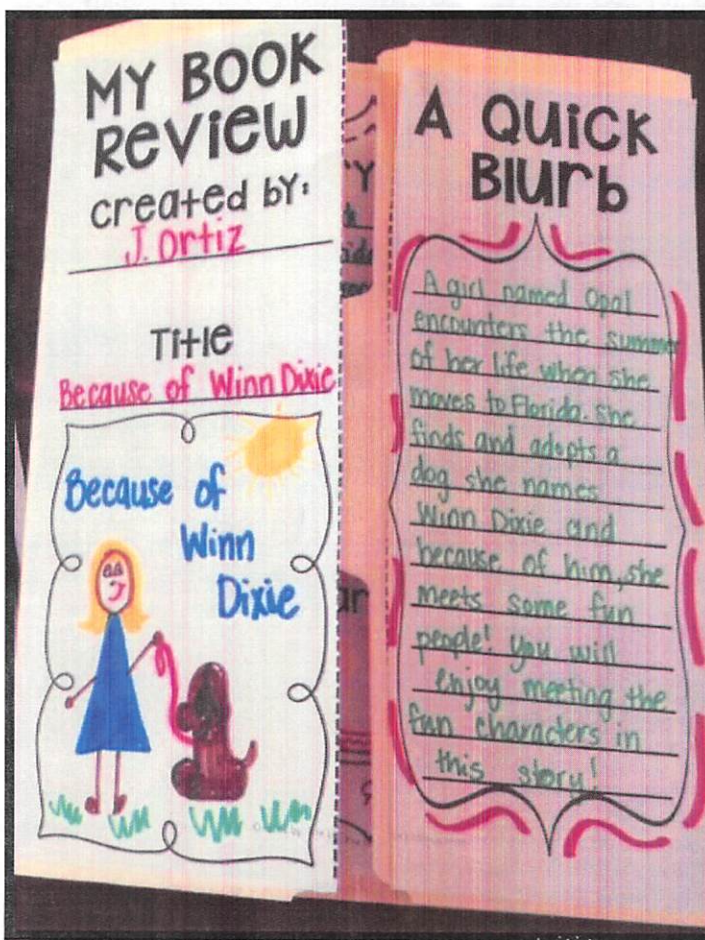 MY BOOK
REVIEW
created BY:
J. Ortiz
Title
Because of Winn Dixie
Because of
Winn
Dixie
A QUICK
Blurb
A girl named Opal
encounters the summer
of her life when she
moves to Florida. She
finds and adopts a
dog she names
Winn Dixie and
because of him, she
meets some fun
people! You will
enjoy meeting the
fun characters in
this story!